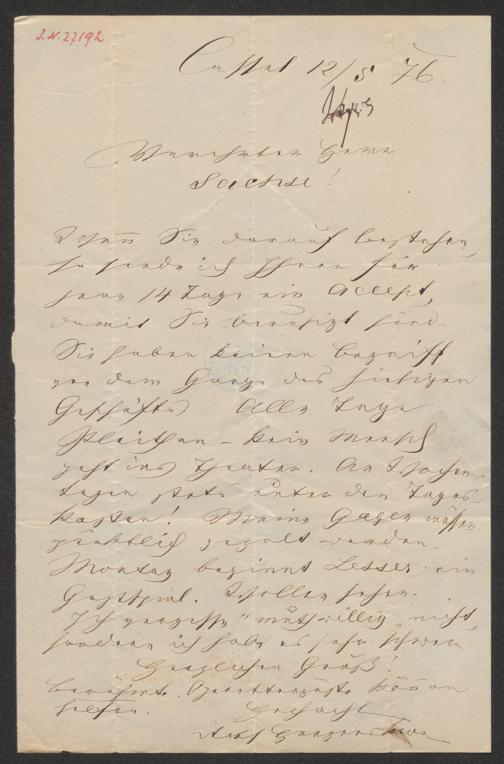 J.N. 27192
Cassel 12/5 76.
Verehrter Herr
Sachse!
Wenn Sie darauf bestehen,
so sende ich Ihnen für
jene 14 Tage ein Accept,
damit Sie beruhigt sind.
Sie haben keinen Begriff
von dem Gange des hiesigen
Geschäfts Alle Tage
Pleiten – kein Mensch
geht ins Theater. An Wochen-
tagen stets unter den Tages-
kosten! Meine Gagen müssen
pünktlich gezahlt werden.
Montag beginnt Lesser ein
Gastspiel. Wollen sehen.
Ich vergesse "muthwillig" nicht,
sondern ich habe es sehr schwer
Herzlichen Gruß!
Berühmte Operettengäste können
helfen.